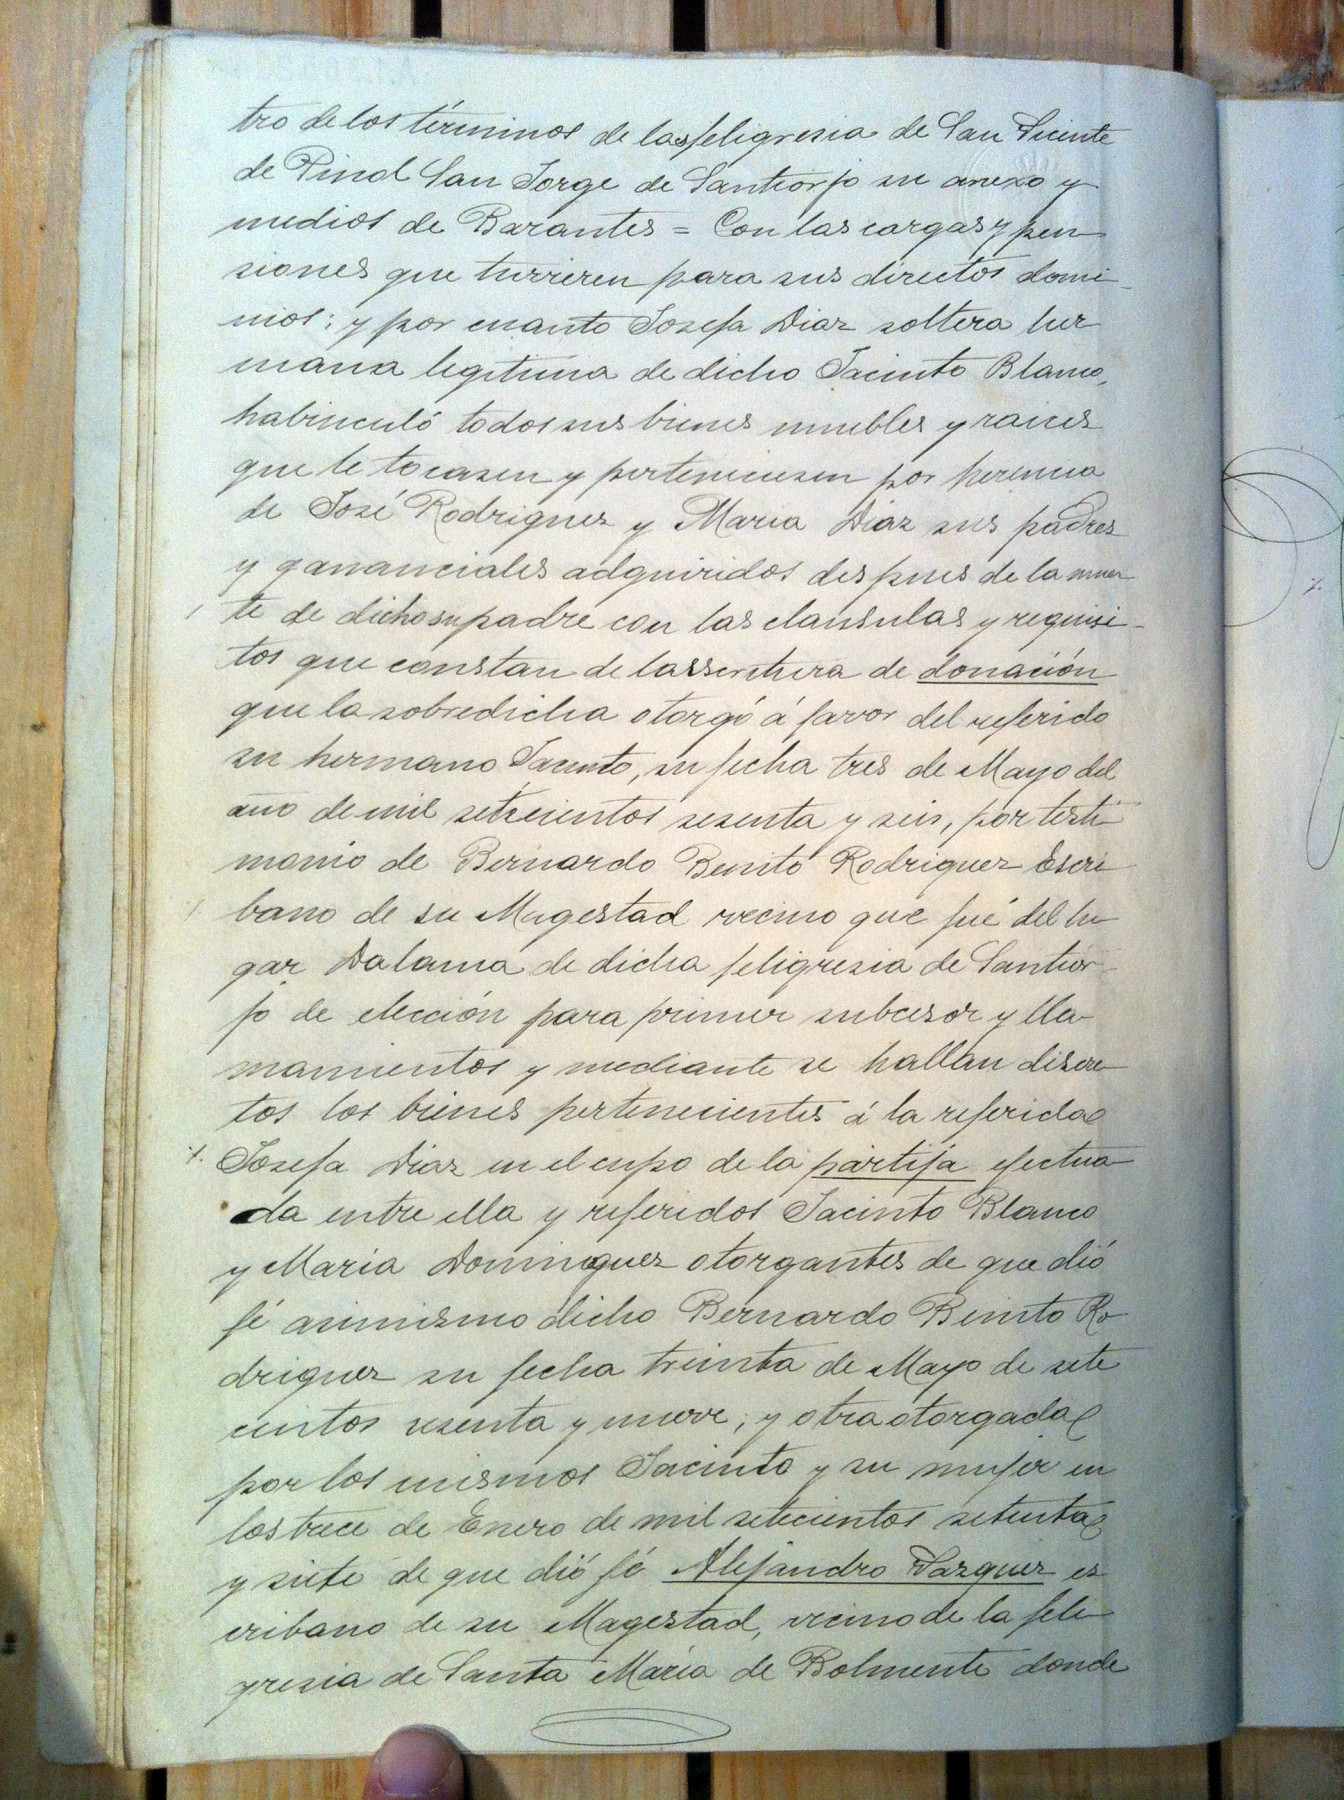 tro de los términos de las feligresia de San Vicente
de Pinol San Jorge de Santiorjo su anexo y
medios de Barantes = Con las cargas y pen
siones que tuvieren para sus directos domi-
nios; y por cuanto Josefa Diaz soltera her
mana legitima de dicho Jacinto Blanco,
habinculó todos sus bienes muebles y raices
que le tocasen y perteneciesen por herencia
de José Rodriguez y Maria Diaz sus padres
y gananciales adquiridos despues de la muer
te de dicho su padre con las clausulas y requisi-
tos que constan de la escritura de donación
que la sobredicha otorgó á favor del referido
su hermano Jacinto, su fecha tres de Mayo del
año de mil setecientos sesenta y seis, por testi
monio de Bernardo Benito Rodriguez Escri
bano de su Magestad vecino que fué del lu
gar Dalama de dicha feligresia de Santior-
jo de elección para primer subcesor y lla-
mamientos y mediante se hallan discre
tos los bienes pertenecientes á la referida
Josefa Diaz en el cupo de la partija efectua
da entre ella y referidos Jacinto Blanco
y Maria Dominguez otorgantes de que dió
fé asimismo dicho Bernardo Benito Ro-
driguez su fecha treinta de Mayo de sete
cientos sesenta y nueve; y otra otorgada
por los mismos Jacinto y su mujer en
los trece de Enero de mil setecientos setenta
y siete de que dió fé Alejandro Vazquez es
cribano de su Magestad, vecino de la feli-
gresia de Santa Maria de Bolmente donde